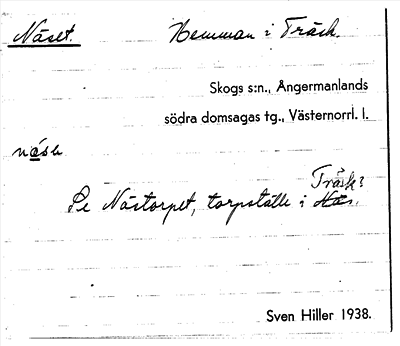 Näset. Hemman i Träck.
Skogs s:n., Ångermanlands
södra domsagas tg., Västernorrl. l.
Träck?
Se Nästorpet, torpställe i Näs.
Sven Hiller 1938.